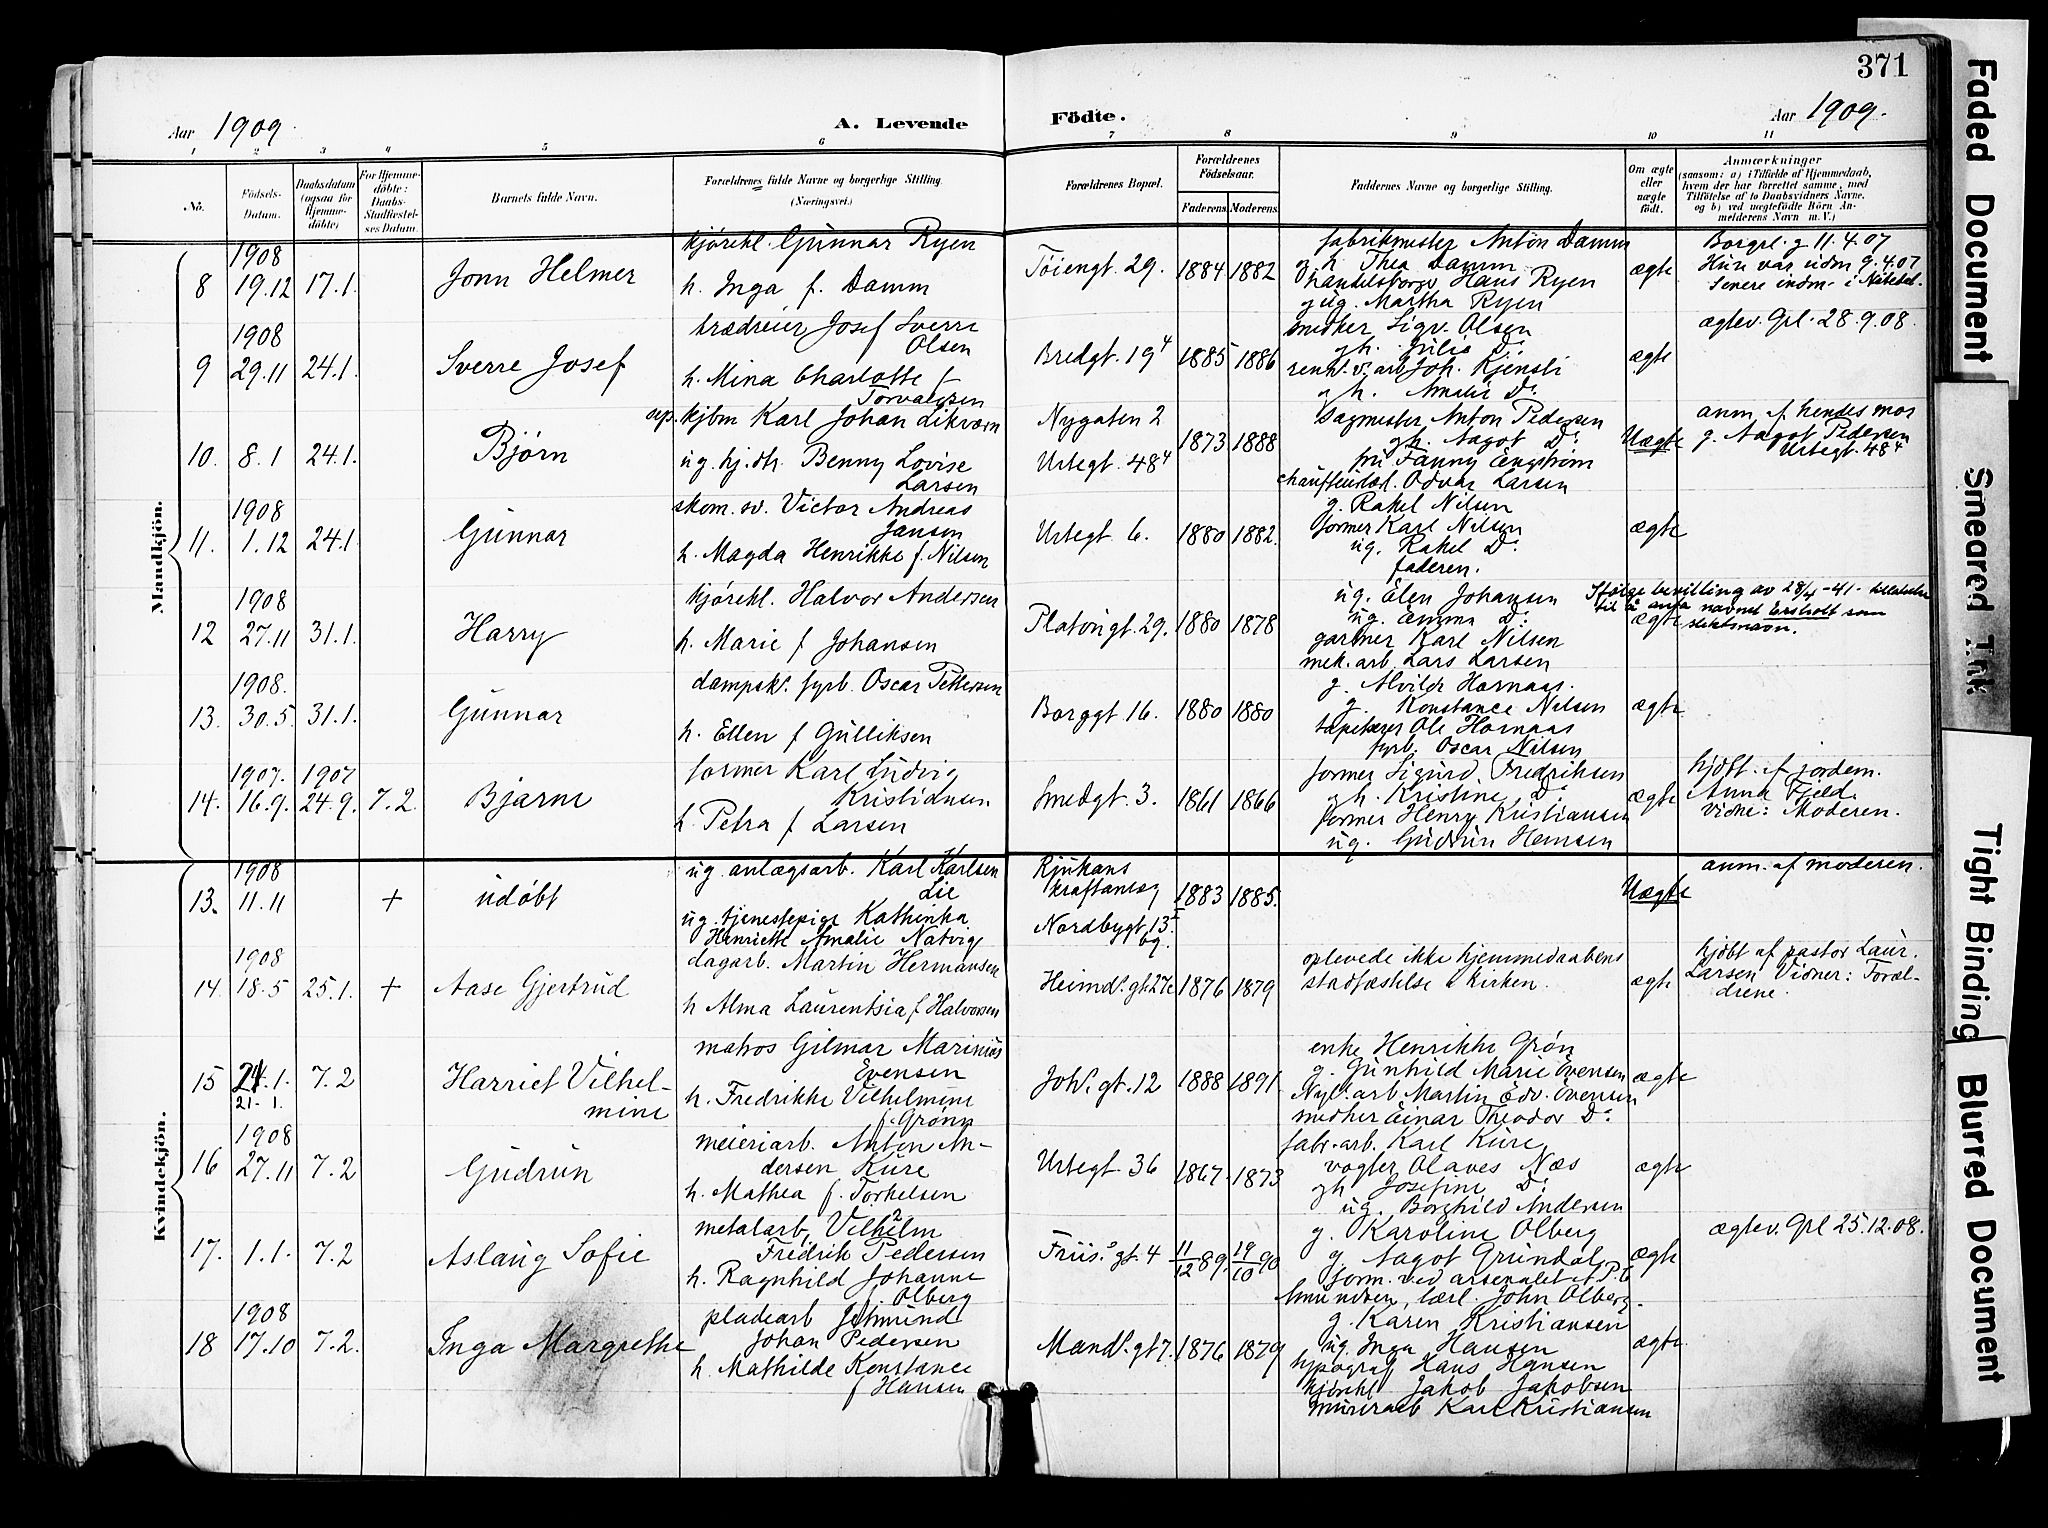 371
Aar 1909.
A. Levende Födte.
Aar 1909.
1 2 3 4 5 6 7 8 9 10 11
No.
Födsels-Datum.
Daabsdatum (ogsaa for Hjemme-döbte)
For Hjemme-döbte: Daabs-Stadfæstel-ses Datum.
Barnets fulde Navn.
Forældrenes fulde Navne og borgerlige Stilling.
(Næringsvei.)
Forældrenes Bopæl.
Forældrenes Födselsaar.
Faderens. Moderens.
Faddernes Navne og borgerlige Stilling.
Om ægte eller uægte födt.
Anmærkninger
(saasom: a) i Tilfælde af Hjemmedaab,
hvem der har forrettet samme, med
Tilföielse af to Daabsvidners Navne,
og b) ved uægtefödte Börn An-
melderens Navn m. V.)
Mandkjön.
8 1908 19.12 17.1. Jonn Helmer
kjørekl. Gunnar Ryen
h. Inga f. Damm
Töiengt. 29. 1884 1882
fabrikmester Anton Damm
g h. Thea Damm
handelsborger Hans Ryen
g ug. Martha Ryen
ægte
Borgrl. g 11.4.07
Hun var udm 9.4.07
Senere indm. i
9 1908 29.11 24.1. Sverre Josef
trædreier Josef Sverre
Olsen
h. Mina Charlotte f
Torvaldsen
Bredgt. 19⁴ 1885 1886
snedker Sigv. Olsen
gh. Julie Do
renh.v. arb Joh. Kjensli
gh. Amalie Do
ægte
ægtev. Gpl. 28.9.08.
10. 8.1 24.1. Bjørn
sep. kjbm Karl Johan Likværn
ug. hj. dtr. Benny Lovise
Larsen
Nygaten 2
Urtegt. 48⁴
1873 1888
sagmester Anton Pedersen
gh. Aagot Do
fru Fanny Engstrøm
Odvar Larsen
Uægte
anm. af hendes mor
g. Aagot Pedersen
Urtegt. 48⁴
11. 1908 1.12 24.1 Gunnar
skom. sv. Victor Andreas
Jansen
h. Magda Henrikke f. Nilsen
Urtegt 6. 1880 1882.
g. Rakel Nilsen
former Karl Nilsen
ug. Rakel Do
faderen.
ægte
12 1908 27.11 31.1. Harry
kjørekl. Halvor Andersen
h. Marie f Johansen
Platougt. 29. 1880 1878
ug. Elen Johansen
ug. Emma Do
gartner Karl Nilsen
mek. arb. Lars Larsen
ægte
Ifølge bevilling av 28/4-41- tillatelse
til å anta navnet Ersholt som
slektsnavn.
13. 1908. 30.5. 31.1. Gunnar
dampsk. fyrb. Oscar Pettersen
h. Ellen f Gulliksen
Borggt. 16. 1880 1880
g. Alvilde Hornaas.
g. Konstance Nilsen
tapetserer Ole Hornaas
fyrb. Oscar Nilsen
ægte
14. 1907. 16.9. 1907 24.9. 7.2. Bjarne
former Karl Ludvig
Kristiansen
h. Petra f Larsen
Smedgt. 3. 1861 1866
former Sigurd Fredriksen
gh. Kristine Do
former Henry Kristiansen
ug. Gudrun Hansen
ægte
hjdøbt. af jordem.
Anna Fjeld.
vidne: Moderen.
Kvindekjön.
13. 1908 11.11 + udøbt
ug. anlægsarb. Karl Karlsen
Lie
ug. tjenestepige Kathinka
Henriette Amalie Natvig
Rjukans
kraftanlæg
Nordbygt. 13
1883 1885.
Uægte
anm. af moderen.
14. 1908 18.5 25.1. + Aase Gjertrud
dagarb. Martin Hermansen
h Alma Laurentsia f Halvorsen
Heimd. gt. 27c 1876 1879
oplevede ikke hjemmedaabens
stadfæstelse i kirken.
ægte
hjdøbt af pastor Laur.
Larsen Vidner: Foræl-
drene.
15 21.1. 7.2 Harriet Vilhel-
mine
21-1.
matros Gilmar Marinius
Evensen
h. Fredrikke Vilhelmine
f. Grønn
Joh. gt. 12 1888 1891.
enke Henrikke Grøn
g. Gunhild Marie Evensen
Martin Edv. Evensen
snedker Einar Theodor Do
ægte
16 1908 27.11 7.2 Gudrun
meieriarb. Anton An-
dersen Kure
h. Mathea f. Torkelsen
Urtegt. 36 1867. 1873
fabr. arb. Karl Kure
vogter Olaves Næs
gh. Josefine Do
ug. Borghild Andersen
ægte
17. 1.1. 7.2 Aslaug Sofie
metalarb. Vilhelm
Fredrik Pedersen
h. Ragnhild Johanne
f. Olberg
Friis. gt. 4 11/12 89. 19/10 90
g. Karoline Olberg
g. Aagot Grundal
form. ved arsenalet
Amundsen, lærl. John Olberg.
ægte
ægtev. Gpl 25.12.08.
18 1908 17.10 7.2. Inga Margrethe
pladearb Jetmund
Johan Pedersen
h. Mathilde Konstance
f Hansen
Mand. gt 7. 1876 1879
g. Karen Kristiansen
ug. Inga Hansen
typograf Hans Hansen
kjørekl. Jakob Jakobsen
murerarb Karl Kristiansen
ægte
Faded Document
Smeared Ink
Tight Binding
Blurred Document